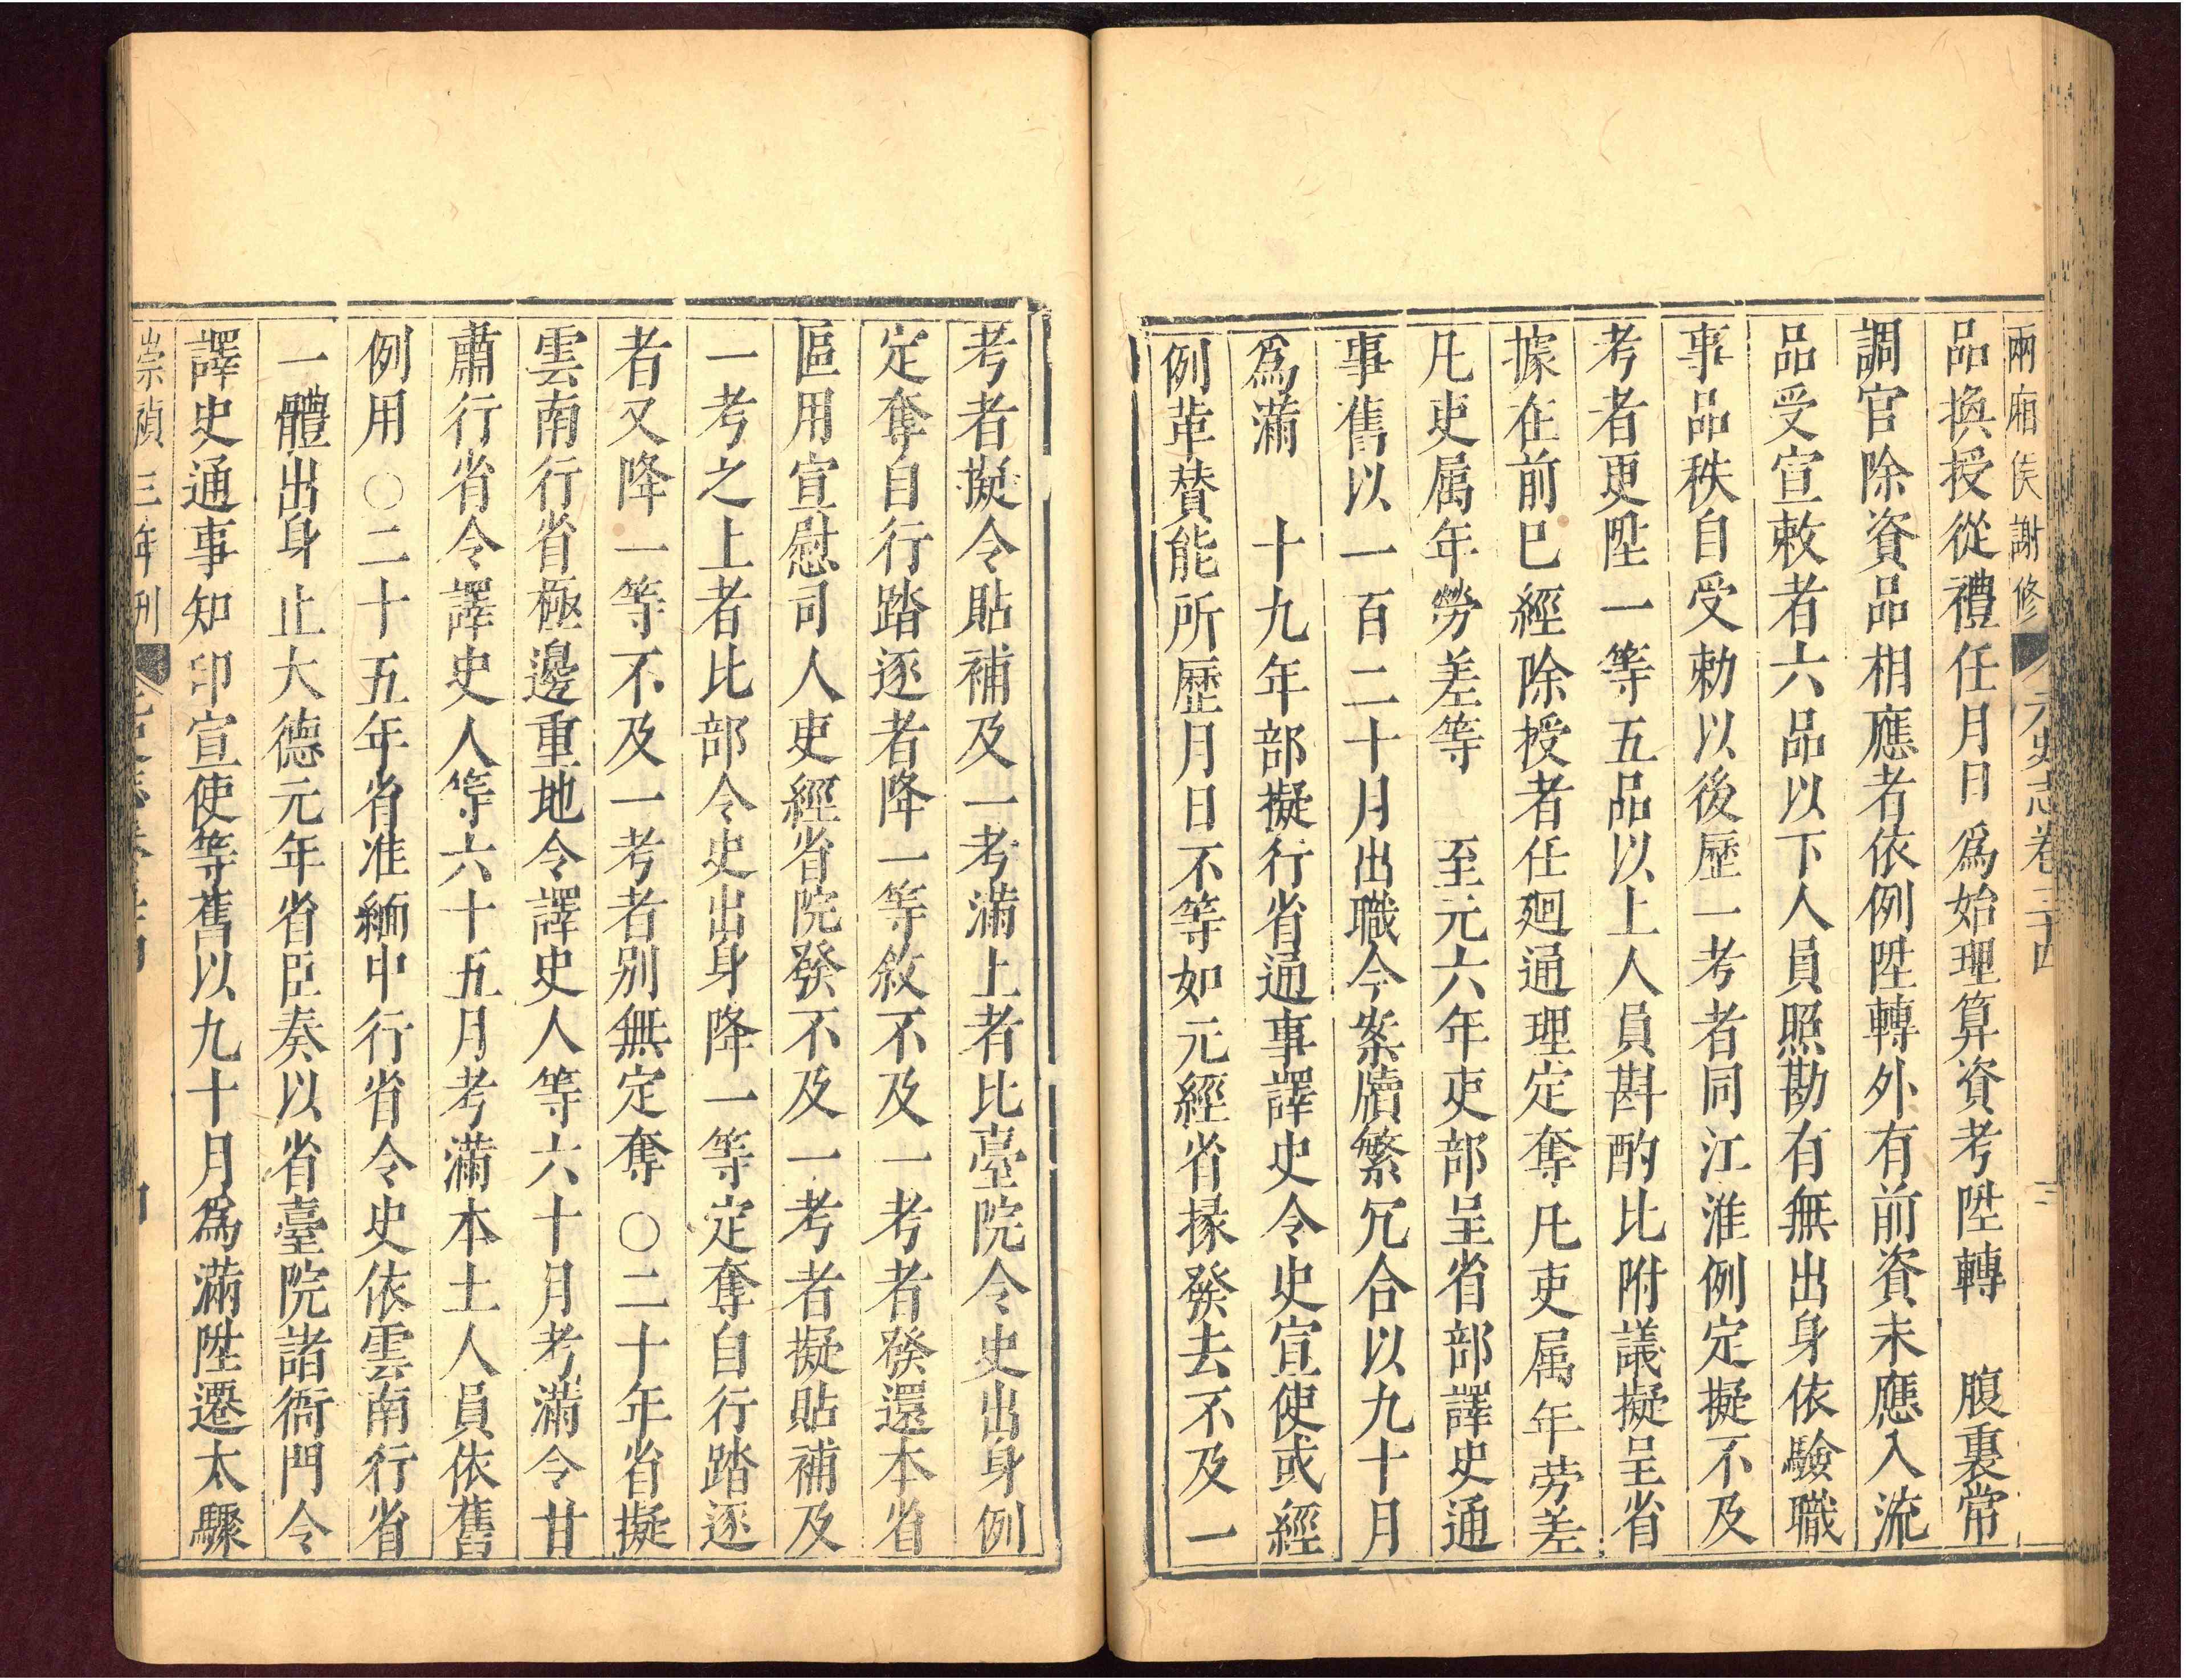 兩廂侯謝修 元史志卷三十四 三
品換授從禮任月日爲始理算資考陞轉 腹裏常
調官除資品相應者依例陞轉外有前資未應入流
品受宣敕者六品以下人員照勘有無出身依驗職
事品秩自受勅以後歷一考者同江淮例定擬不及
考者更陞一等五品以上人員斟酌比附議擬呈省
據在前已經除授者任廻通理定奪凡吏属年劳差
凡吏属年勞差等 至元六年吏部呈省部譯史通
事舊以一百二十月出職今案牘繁冗合以九十月
爲滿 十九年部擬行省通事譯史令史宣使或經
例革賛能所歷月日不等如元經省掾發去不及一
考者擬令貼補及一考滿上者比臺院令史出身例
定奪自行踏逐者降一等敘不及一考者發還本省
區用宣慰司人吏經省院發不及一考者擬貼補及
一考之上者比部令史出身降一等定奪自行踏逐
者又降一等不及一考者别無定奪○二十年省擬
雲南行省極邊重地令譯史人等六十月考滿令甘
肅行省令譯史人等六十五月考滿本土人員依舊
例用○二十五年省准緬中行省令史依雲南行省
一體出身止大德元年省臣奏以省臺院諸衙門令
譯史通事知印宣使等舊以九十月爲滿陞遷太驟
崇禎三年刊